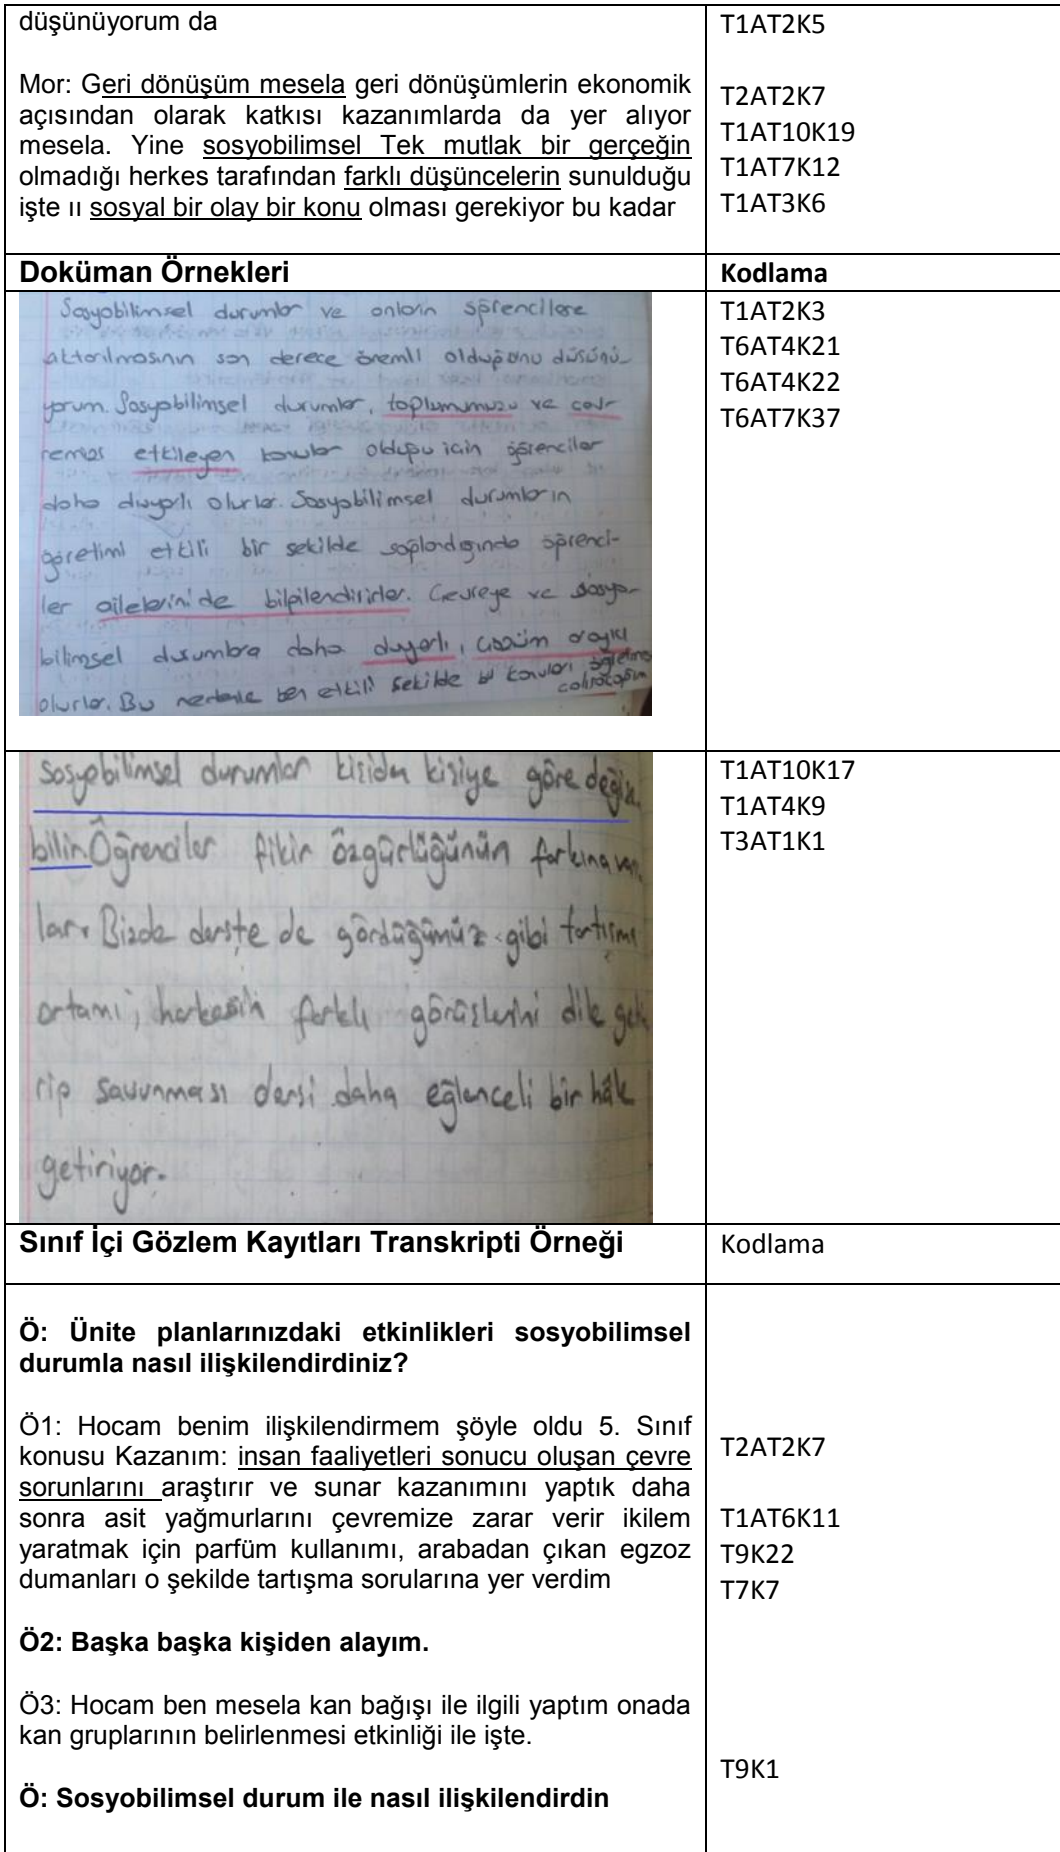 düşünüyorum da
T1AT2K5
Mor: Geri dönüşüm mesela geri dönüşümlerin ekonomik
açısından olarak katkısı kazanımlarda da yer alıyor
mesela. Yine sosyobilimsel Tek mutlak bir gerçeğin
olmadığı herkes tarafından farklı düşüncelerin sunulduğu
işte ıı sosyal bir olay bir konu olması gerekiyor bu kadar
T2AT2K7
T1AT10K19
T1AT7K12
T1AT3K6
Doküman Örnekleri
Kodlama
Sosyobilimsel durumlar ve onların öğrencilere
aktarılmasının son derece önemli olduğunu düşünü-
yorum. Sosyobilimsel durumlar, toplumumuzu ve çev-
remizi etkileyen konular olduğu için öğrenciler
daha duyarlı olurlar. Sosyobilimsel durumların
öğretimi etkili bir şekilde sağlandığında öğrenci-
ler ailelerini de bilgilendirirler. Çevreye ve sosyo-
bilimsel durumlara daha duyarlı, çözüm arayıcı
olurlar. Bu nedenle ben etkili şekilde bu konuları öğretmeye
çalışacağım
T1AT2K3
T6AT4K21
T6AT4K22
T6AT7K37
sosyobilimsel durumlar kişiden kişiye göre değişe
bilir. Öğrenciler fikir özgürlüğünün farkına var
lar. Bizde derste de gördüğümüz gibi tartışma
ortamı, herkesin farklı görüşlerini dile geti
rip savunması dersi daha eğlenceli bir hâle
getiriyor.
T1AT10K17
T1AT4K9
T3AT1K1
Sınıf İçi Gözlem Kayıtları Transkripti Örneği
Kodlama
Ö: Ünite planlarınızdaki etkinlikleri sosyobilimsel
durumla nasıl ilişkilendirdiniz?
Ö1: Hocam benim ilişkilendirmem şöyle oldu 5. Sınıf
konusu Kazanım: insan faaliyetleri sonucu oluşan çevre
sorunlarını araştırır ve sunar kazanımını yaptık daha
sonra asit yağmurlarını çevremize zarar verir ikilem
yaratmak için parfüm kullanımı, arabadan çıkan egzoz
dumanları o şekilde tartışma sorularına yer verdim
T2AT2K7
T1AT6K11
T9K22
T7K7
Ö2: Başka başka kişiden alayım.
Ö3: Hocam ben mesela kan bağışı ile ilgili yaptım onada
kan gruplarının belirlenmesi etkinliği ile işte.
T9K1
Ö: Sosyobilimsel durum ile nasıl ilişkilendirdin